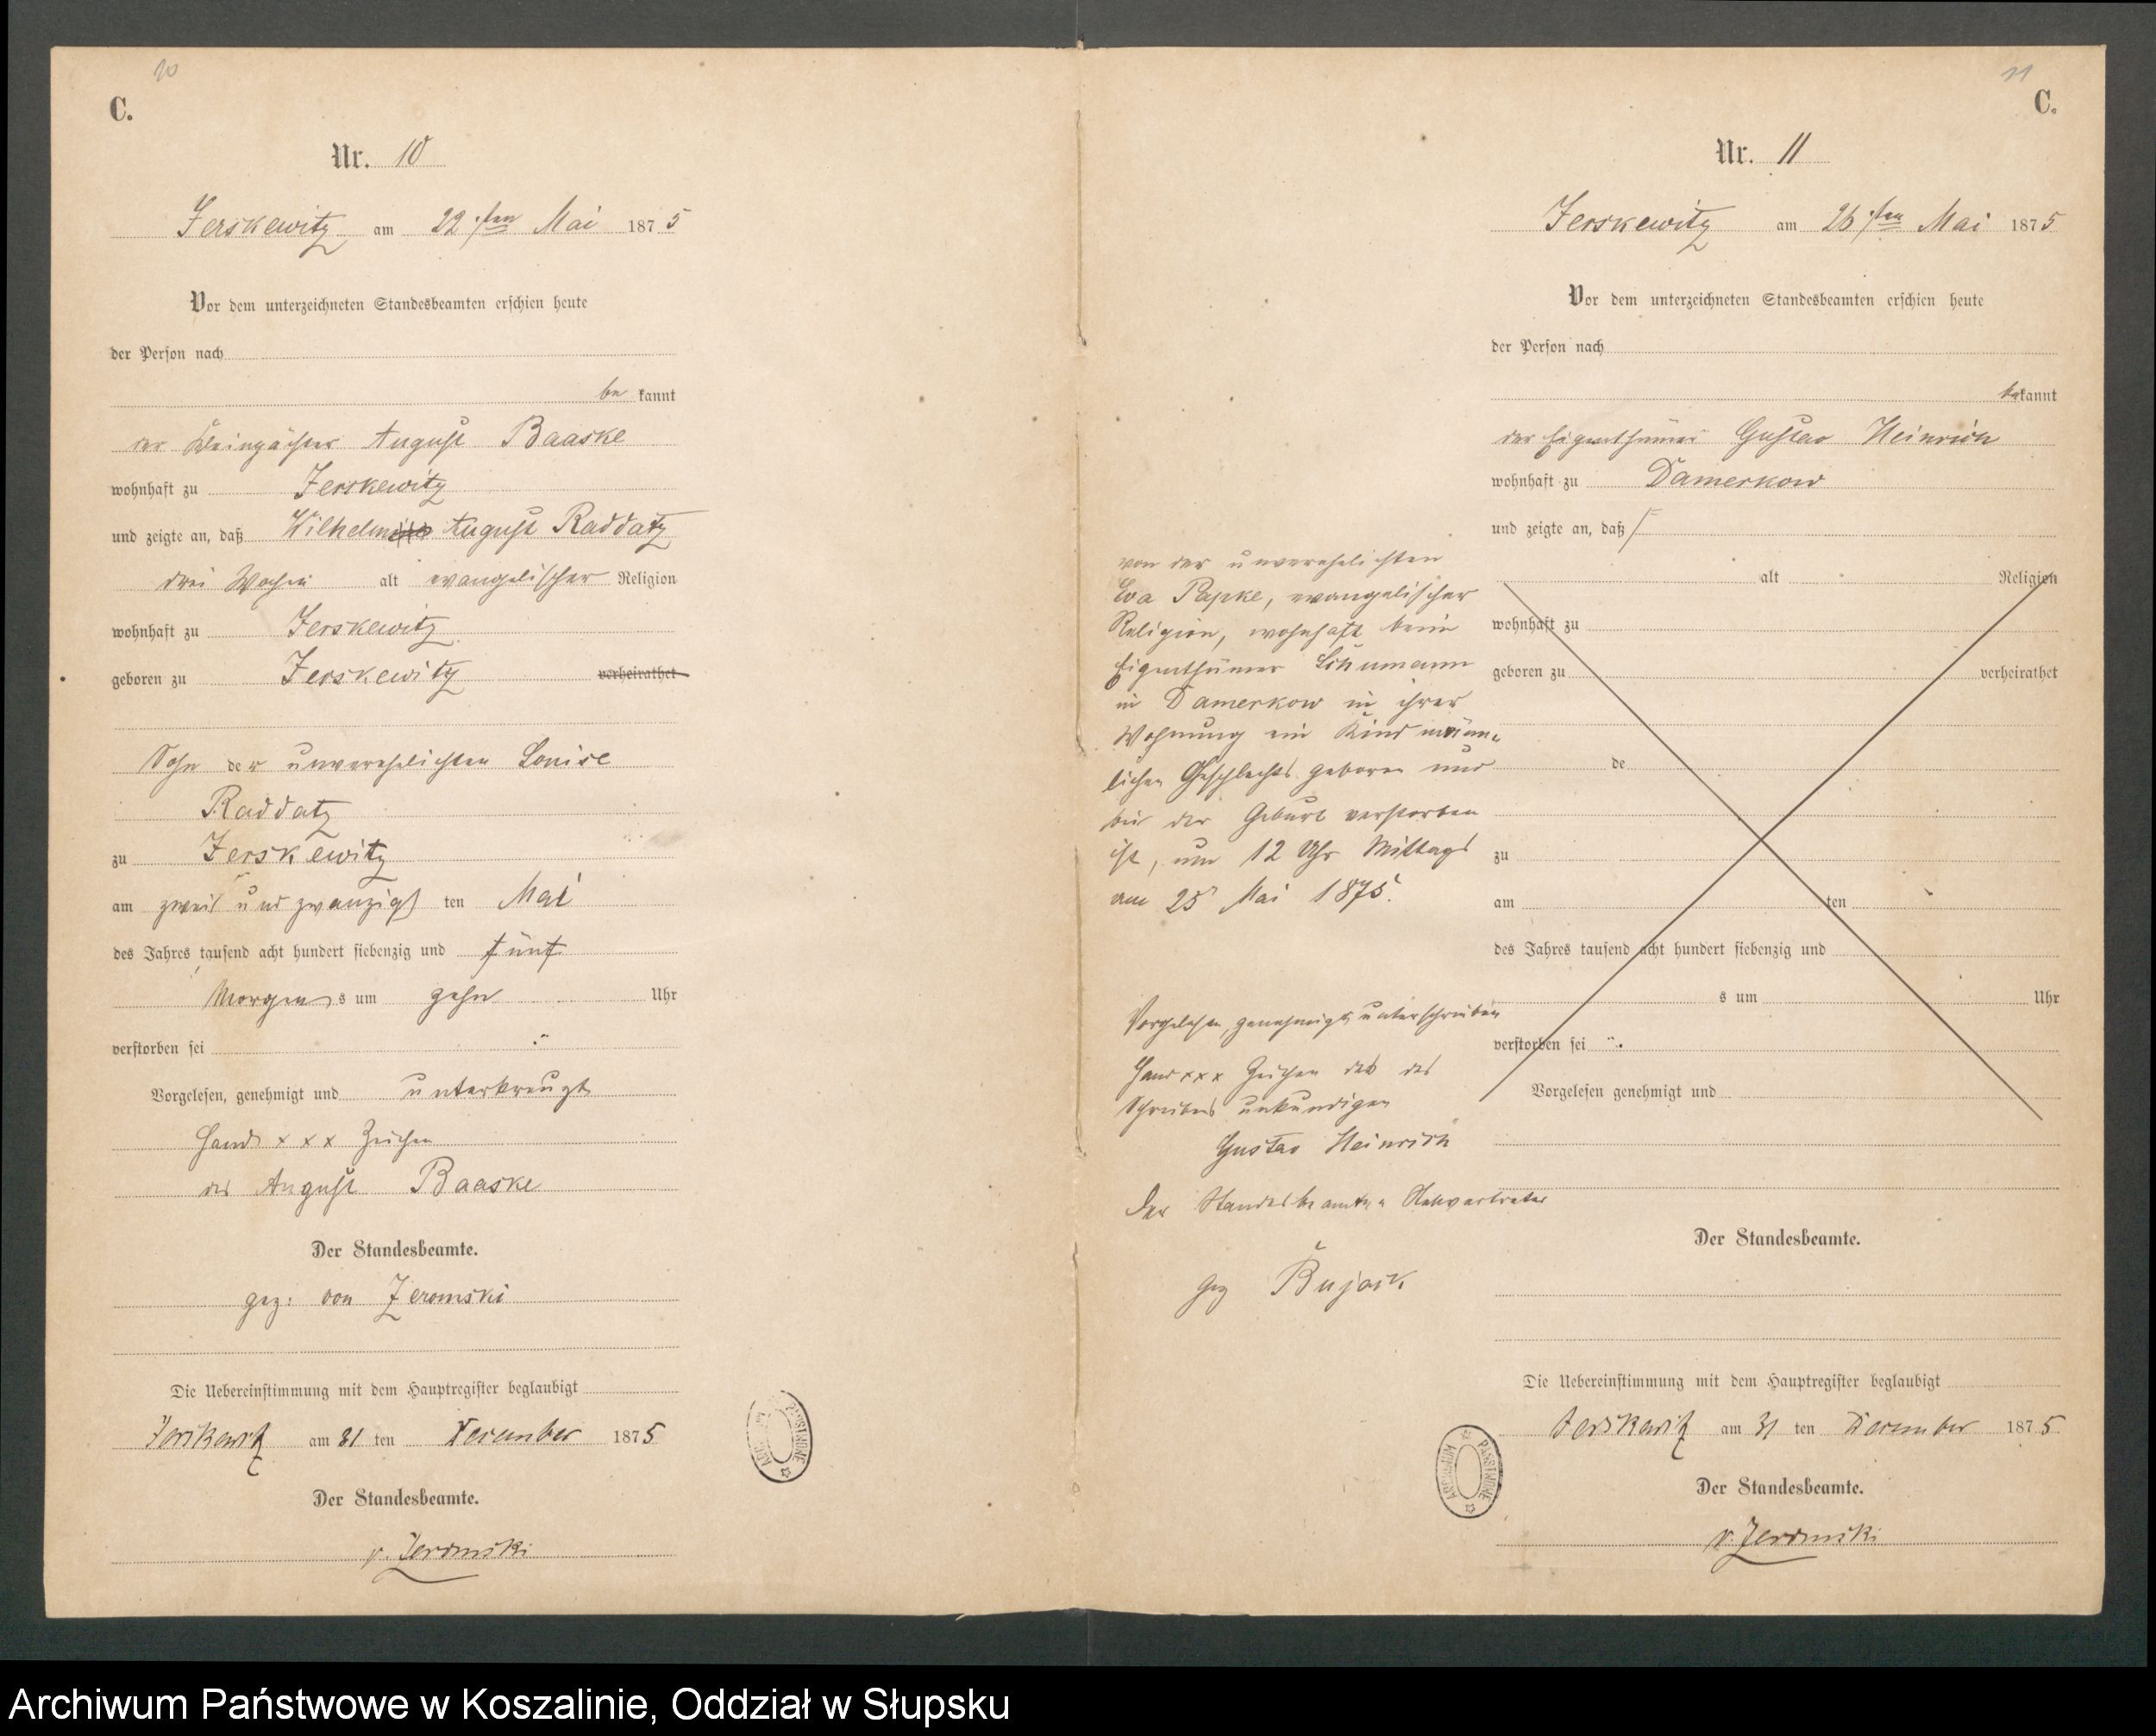 10
C.
Nr. 10
Jerskewitz am 22 sten Mai 1875
Vor dem unterzeichneten Standesbeamten erschien heute
der Person nach
be kannt
der Kleinpächter August Baaske
wohnhaft zu Jerskewitz
und zeigte an, daß Wilhelm August Raddatz
drei Wochen alt evangelischer Religion
wohnhaft zu Jerskewitz
geboren zu Jerskewitz verheirathet
Sohn der unverehelichten Louise
Raddatz
zu Jerskewitz
am zwei und zwanzigs ten Mai
des Jahres tausend acht hundert siebenzig und fünf
Morgens um zehn Uhr
verstorben sei
Vorgelesen, genehmigt und unterkreuzt
Hand x x x Zeichen
des August Baaske
Der Standesbeamte.
gez: von Zeromski
Die Uebereinstimmung mit dem Hauptregister beglaubigt
Jerskewitz am 31 ten December 1875
Der Standesbeamte.
v. Zeromski
11
C.
Nr. 11
Jerskewitz am 26 sten Mai 1875
Vor dem unterzeichneten Standesbeamten erschien heute
der Person nach
bekannt
der Eigenthümer Gustav Heinrich
wohnhaft zu Damerkow
und zeigte an, daß
von der unverehelichten
Eva Papke, evangelischer
Religion, wohnhaft beim
Eigenthümer Schumann
in Damerkow in ihrer
Wohnung ein Kind männ-
lichen Geschlechts geboren und
bei der Geburt verstorben
ist, um 12 Uhr Mittags
am 25 Mai 1875.
Vorgelesen, genehmigt unterschrieben
Hand x x x Zeichen des
Schreibens unkundigen
Gustav Heinrich
Der Standesbeamte Stellvertreter
gez Bujack
alt Religion
wohnhaft zu
geboren zu verheirathet
de
zu
am ten
des Jahres tausend acht hundert siebenzig und
s um Uhr
verstorben sei
Vorgelesen genehmigt und
Der Standesbeamte.
Die Uebereinstimmung mit dem Hauptregister beglaubigt
Jerskewitz am 31 ten December 1875
Der Standesbeamte.
v. Zeromski
ARCHIWUM PAŃSTWOWE
Archiwum Państwowe w Koszalinie, Oddział w Słupsku